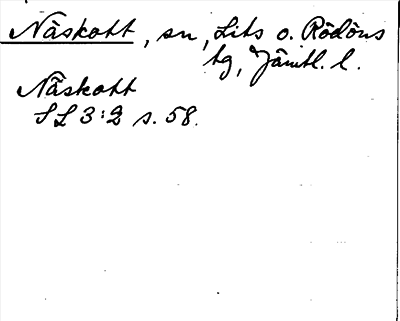 Näskott, sn, Lits o. Rödöns
tg, Jämtl. l.
Näskott
SL 3:2 s. 58.